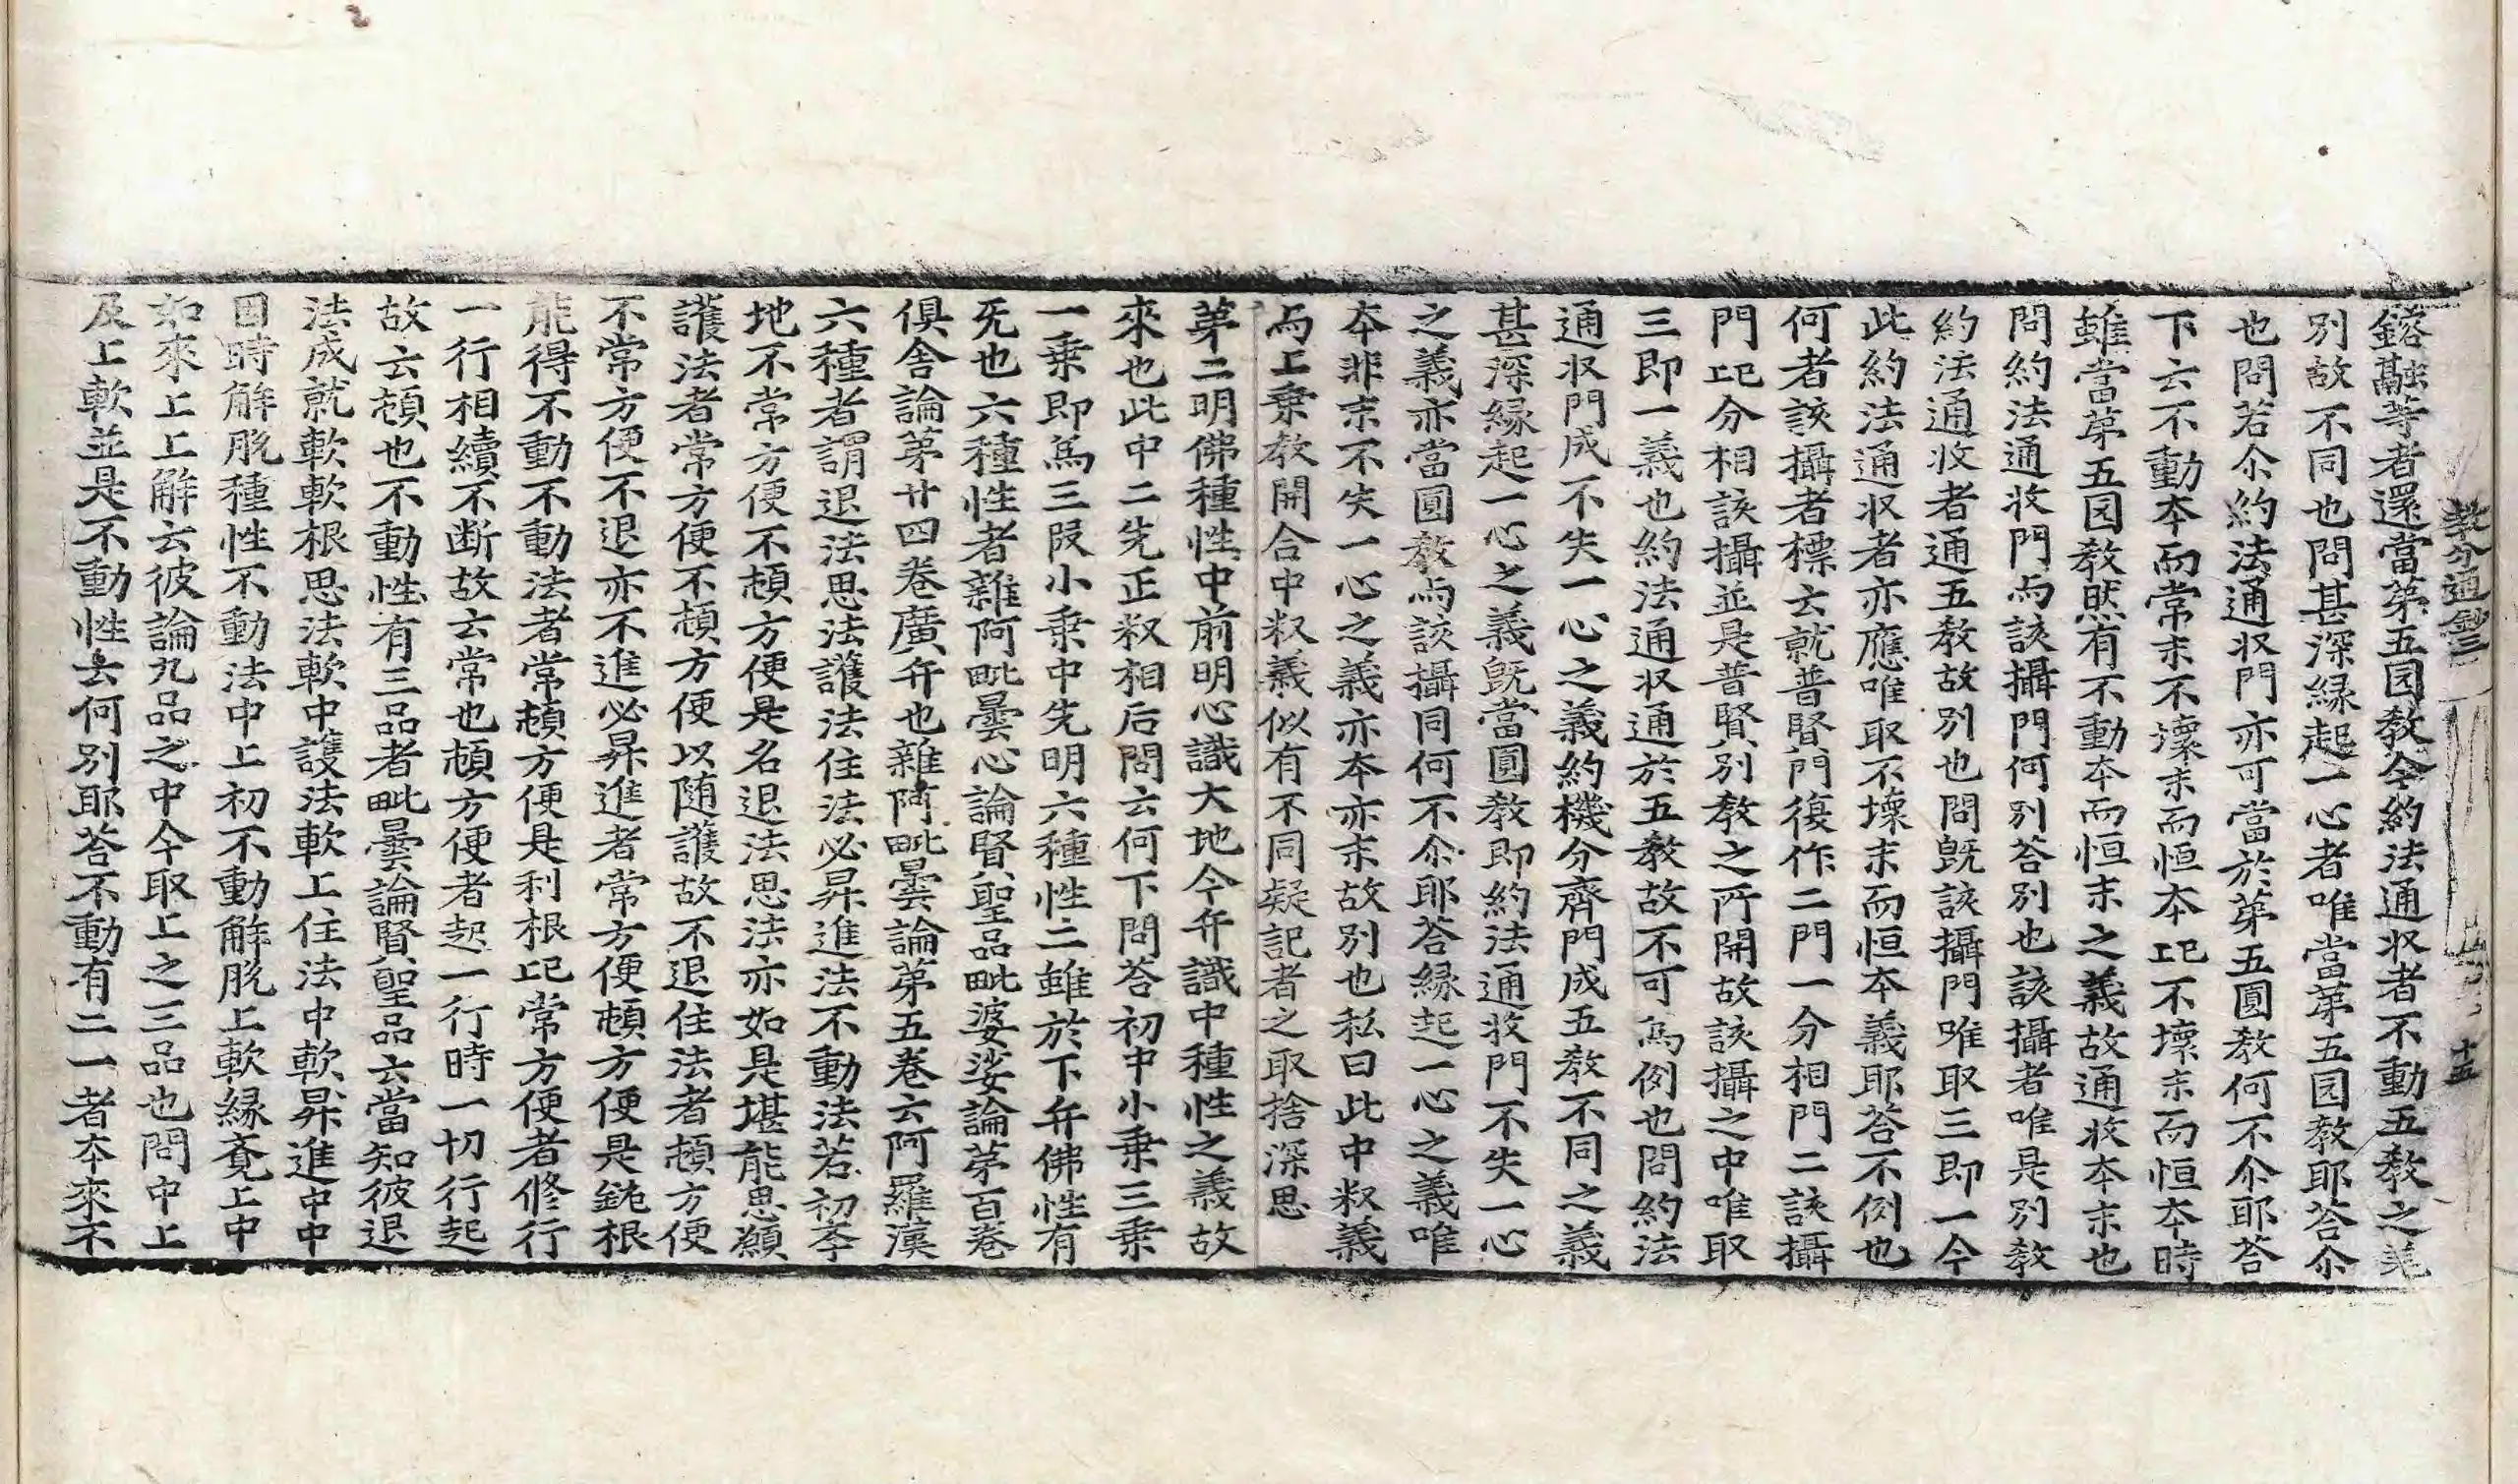 教分通鈔三
十五
鎔融等者還當苐五囯教今約法通収者不動五教之羙
別故不同也問甚深縁起一心者唯當苐五囯教耶荅尒
也問若尒約法通収門亦可當於苐五圓教何不尒耶荅
下云不動夲而常末不壞末而恒夲記不壞末而恒夲時
雖當苐五囯教然有不動夲而恒末之義故通收夲末也
問約法通收門与該攝門何別荅別也該攝者唯是別教
約法通收者通五教故別也問旣該攝門唯取三即一今
此約法通収者亦應唯取不壞末而恒夲義耶荅不例也
何者該攝者標云就普賢門復作二門一分相門二該攝
門記分相該攝並是普賢別教之所開故該攝之中唯取
三即一義也約法通収通於五教故不可為例也問約法
通収門成不失一心之義約機分齊門成五教不同之義
甚深縁起一心之義旣當圓教即約法通收門不失一心
之義亦當圓教与該攝同何不尒耶荅縁起一心之義唯
夲非末不失一心之義亦夲亦末故別也私曰此中釈義
与上乗教開合中釈義似有不同疑記者之取捨深思
苐二明佛種性中前明心識大地今弁識中種性之義故
來也此中二先正釈相后問云何下問荅初中小乗三乗
一乗即為三叚小乗中先明六種性二雖於下弁佛性有
旡也六種性者雜阿毗曇心論賢聖品毗婆娑論苐百卷
俱舍論苐廿四卷廣弁也雜阿毗曇論苐五卷云阿羅漢
六種者謂退法思法護法住法必昇進法不動法若初夲
地不常方便不頓方便是名退法思法亦如是堪能思願
護法者常方便不頓方便以随護故不退住法者頓方便
不常方便不退亦不進必昇進者常方便頓方便是鈍根
能得不動不動法者常頓方便是利根記常方便者修行
一行相續不断故云常也頓方便者起一行時一切行起
故云頓也不動性有三品者毗曇論賢聖品云當知彼退
法成就軟軟根思法軟中護法軟上住法中軟昇進中中
因時解脫種性不動法中上初不動解脫上軟縁覔上中
如來上上解云彼論九品之中今取上之三品也問中上
及上軟並是不動性云何別耶荅不動有二一者夲來不